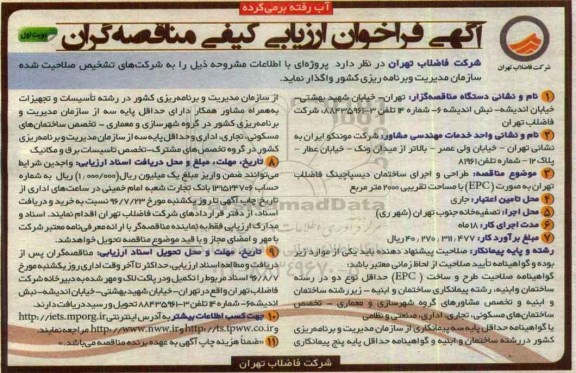 آب رفته برمی‌گردد
آگهی فراخوان ارزیابی کیفی مناقصه‌گران
نوبت اول
شرکت فاضلاب تهران
شرکت فاضلاب تهران در نظر دارد پروژه‌ای با اطلاعات مشروحه ذیل را به شرکت‌های تشخیص صلاحیت شده
سازمان مدیریت و برنامه ریزی کشور واگذار نماید.
۱ نام و نشانی دستگاه مناقصه‌گزار: تهران- خیابان شهید بهشتی
خیابان اندیشه- نبش اندیشه ۶- شماره ۴ تلفن ۳-۸۸۴۳۵۹۶۱ شرکت
فاضلاب تهران
۲ نام و نشانی واحد خدمات مهندسی مشاور: شرکت مونکو ایران به
نشانی تهران - خیابان ولی عصر - بالاتر از میدان ونک - خیابان عطار -
پلاک ۱۲ - شماره تلفن ۸۱۹۶۱
۳ موضوع مناقصه: طراحی و اجرای ساختمان دیسپاچینگ فاضلاب
تهران به صورت (EPC) با مساحت تقریبی ۲۰۰۰ متر مربع
۴ محل تامین اعتبار: جاری
۵ محل اجرا: تصفیه‌خانه جنوب تهران (شهر ری)
۶ مدت اجرای کار: ۱۸ ماه
۷ مبلغ برآورد کار: ۴۰،۲۷۰،۳۱۱،۴۷۷ ریال
رشته و پایه پیمانکار: صلاحیت پیشنهاد دهنده باید یکی از موارد زیر
بوده و گواهینامه تأیید صلاحیت از لحاظ زمانی معتبر باشد.
گواهینامه صلاحیت طرح و ساخت (EPC) حداقل نوع دو در رشته
ساختمان و ابنیه، رشته پیمانکاری ساختمان و ابنیه - زیررشته ساختمان
و ابنیه و تخصص مشاورهای گروه شهرسازی و معماری - تخصص
ساختمان‌های مسکونی، تجاری، اداری، صنعتی و نظامی
یا گواهینامه حداقل پایه سه پیمانکاری از سازمان مدیریت و برنامه‌ریزی
کشور در رشته ساختمان و ابنیه و گواهینامه حداقل پایه پنج پیمانکاری
از سازمان مدیریت و برنامه‌ریزی کشور در رشته تأسیسات و تجهیزات
به‌همراه مشاور همکار دارای حداقل پایه سه از سازمان مدیریت و
برنامه‌ریزی کشور در گروه شهرسازی و معماری - تخصص ساختمان‌های
مسکونی، تجاری، اداری و حداقل پایه سه از سازمان مدیریت و برنامه‌ریزی
کشور در گروه تخصص‌های مشترک-تخصص تاسیسات برق و مکانیک
۸ تاریخ، مهلت، مبلغ و محل دریافت اسناد ارزیابی: واجدین شرایط
می‌توانند ضمن واریز مبلغ یک میلیون ریال (۱،۰۰۰،۰۰۰) ریال به شماره
حساب ۱۳۱۵۲۴۷۰۶ بانک تجارت شعبه امام خمینی در ساعت‌های اداری از
تاریخ چاپ آگهی تا روز یکشنبه مورخ ۹۶/۷/۲۳ نسبت به خرید و دریافت
اسناد، از دفتر قراردادهای شرکت فاضلاب تهران اقدام نمایند. اسناد و
مدارک ارزیابی فقط به نماینده مناقصه‌گر با ارائه معرفی‌نامه معتبر شرکت
با مهر و امضای مجاز و با قید موضوع مناقصه تحویل خواهد شد.
۹ تاریخ، مهلت و محل تحویل اسناد ارزیابی: مناقصه‌گران پس از
دریافت و مطالعه اسناد ارزیابی، حداکثر تا آخر وقت اداری روز یکشنبه مورخ
۹۶/۸/۷ اسناد مربوط را تکمیل و در پاکت لاک و مهر شده به دبیرخانه شرکت
فاضلاب تهران واقع در تهران- خیابان شهید بهشتی- خیابان اندیشه- نبش
اندیشه ۶- شماره ۴ تلفن ۳-۸۸۴۳۵۹۶۱ تحویل و رسید دریافت دارند.
۱۰ جهت کسب اطلاعات بیشتر به آدرس اینترنتی http://iets.mporg.ir
و http://ts.tpww.co.ir و http://www.nww.ir مراجعه نمایند.
۱۱ «ضمناً هزینه چاپ آگهی به عهده برنده مناقصه می‌باشد.»
شرکت فاضلاب تهران